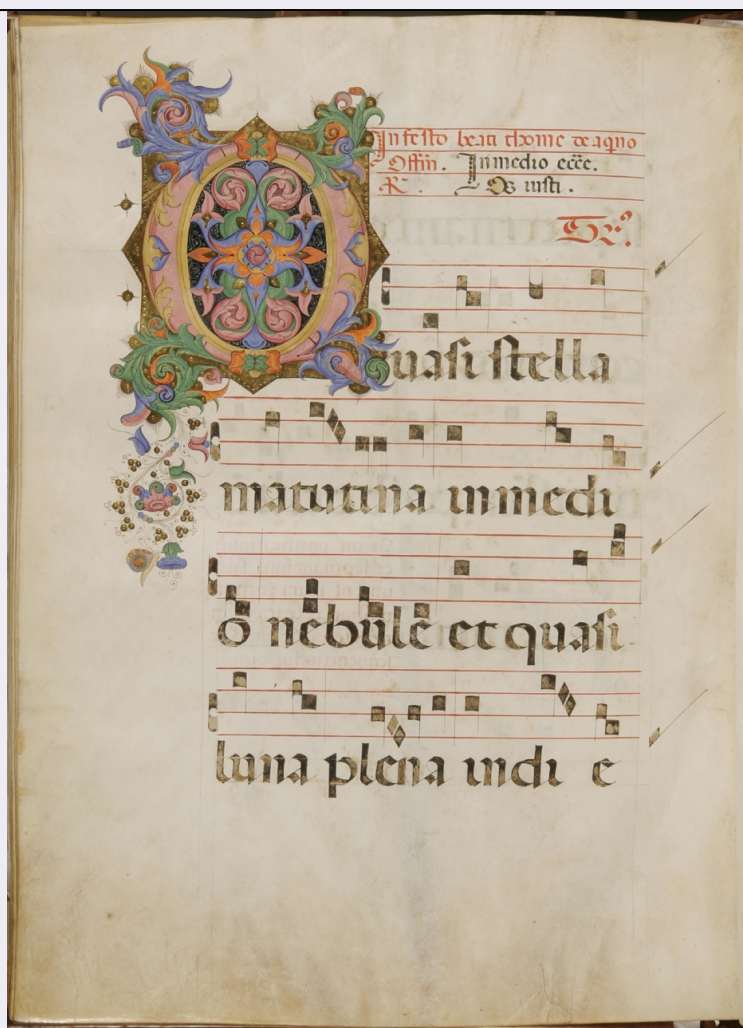 In festo beati thome de aquo
Offm. In medio ecce.
R. Os iusti.
Tr.
Quasi stella
matutina in medi
o nebule et quasi
luna plena in di e